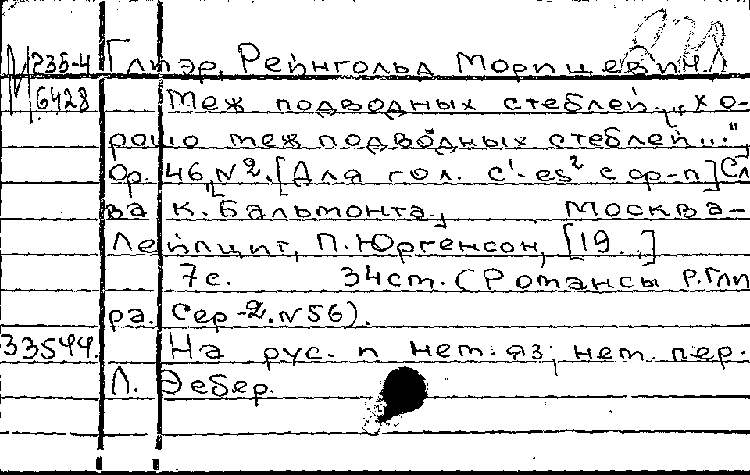 М 235-4 Глиэр, Рейнгольд Морицевич,
6428 Меж подводных стеблей. „Хо-
рошо меж подводных стеблей...",
Op. 46, N 2. [Для гол. c¹-es² с ср-п] Сл
ва К. Бальмонта, Москва-
Лейпциг, П. Юргенсон, [19..]
7 с. 34 ст. (Романсы Р. Гли
ра. Сер-2. N 56).
33544. На рус. и нем. яз; нем. пер.
Л. Эебер.